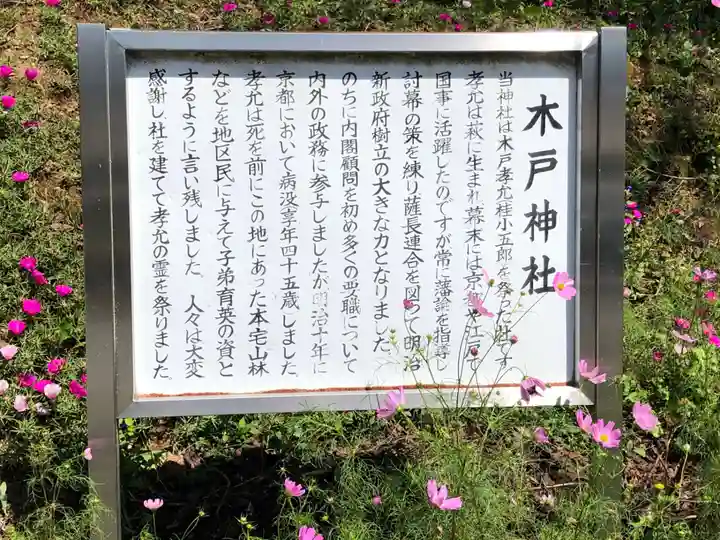 木戸神社
当神社は木戸孝允桂小五郎を祭った社です
孝允は萩に生まれ幕末には京都や江戸で
国事に活躍したのですが常に藩論を指導し
討幕の策を練り薩長連合を図って明治
新政府樹立の大きな力となりました
のちに内閣顧問を初め多くの要職について
内外の政務に参与しましたが明治十年に
京都において病没享年四十五歳でした。
孝允は死を前にこの地にあった本宅山林
などを地区民に与えて子弟育英の資と
するように言い残しました 人々は大変
感謝し社を建てて孝允の霊を祭りました